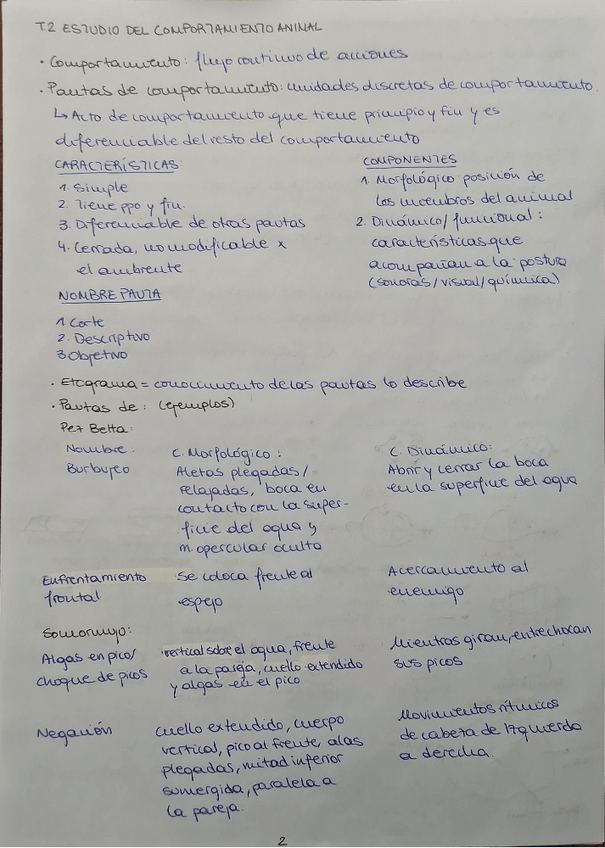 T.2 ESTUDIO DEL COMPORTAMIENTO ANIMAL
· Comportamiento: flujo continuo de acciones
· Pautas de comportamiento: unidades discretas de comportamiento.
↳ Acto de comportamiento que tiene principio y fin y es
diferenciable del resto del comportamiento
CARACTERÍSTICAS:
1. Simple
2. Tiene ppo y fin.
3. Diferenciable de otras pautas
4. Cerrada, no modificable x
el ambiente
COMPONENTES
1. Morfológico posición de
los miembros del animal
2. Dinámico/funcional:
características que
acompañan a la postura
(sonoras/visual/química)
NOMBRE PAUTA
1 Corte
2. Descriptivo
3 Objetivo
· Etograma = conocimiento de las pautas lo describe
· Pautas de: (ejemplos)
Pez Betta:
Nombre:
Burbujeo
C. Morfológico:
Aletas plegadas/
relajadas, boca en
contacto con la super-
ficie del agua y
m. opercular oculto
C. Dinámico:
Abrir y cerrar la boca
en la superficie del agua
Enfrentamiento
frontal
Se coloca frente al
espejo
Acercamiento al
enemigo
Somormujo:
Algas en pico/
choque de picos
vertical sobre el agua, frente
a la pareja, cuello extendido
y algas en el pico
Mientras giran, entrechocan
sus picos
Negación
cuello extendido, cuerpo
vertical, pico al frente, alas
plegadas, mitad inferior
sumergida, paralela a
la pareja.
Movimientos rítmicos
de cabeza de izquierda
a derecha.
2